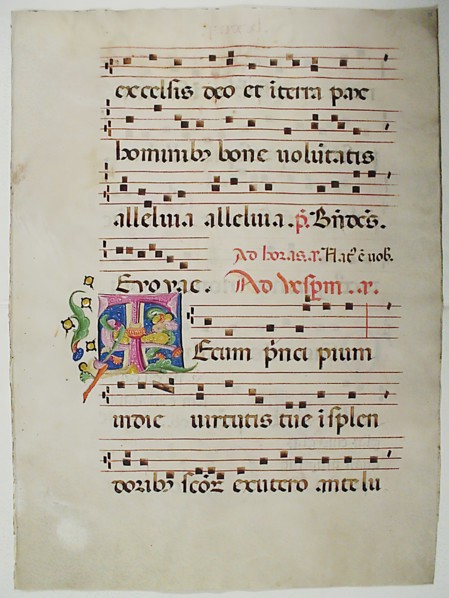 excelsis deo et iterra pax
hominibꝫ bone uolu̅tatis
alleluia alleluia. p̅s. Bn̅dc̅s.
Ad horas. a. Natꝰ ē uob.
Euouae. Ad vesp̅m a.
Tecum p̅nci pium
indie uirtutis tue isplen
doribꝫ sco̅ꝝ exutero antelu